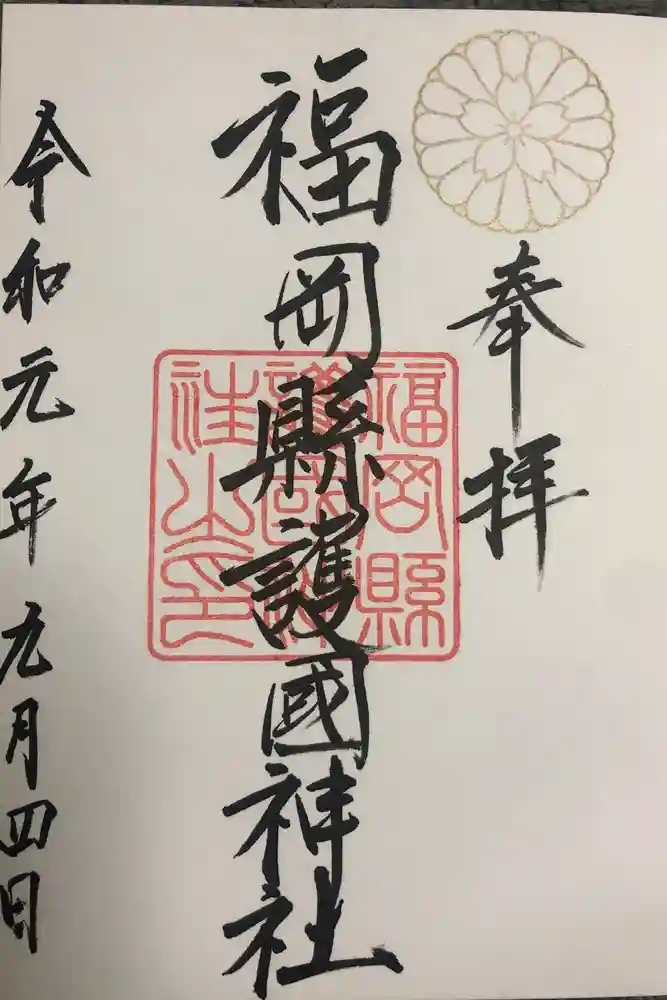 奉拝
福岡縣護國神社
福岡縣
護國神
社之印
令和元年九月四日